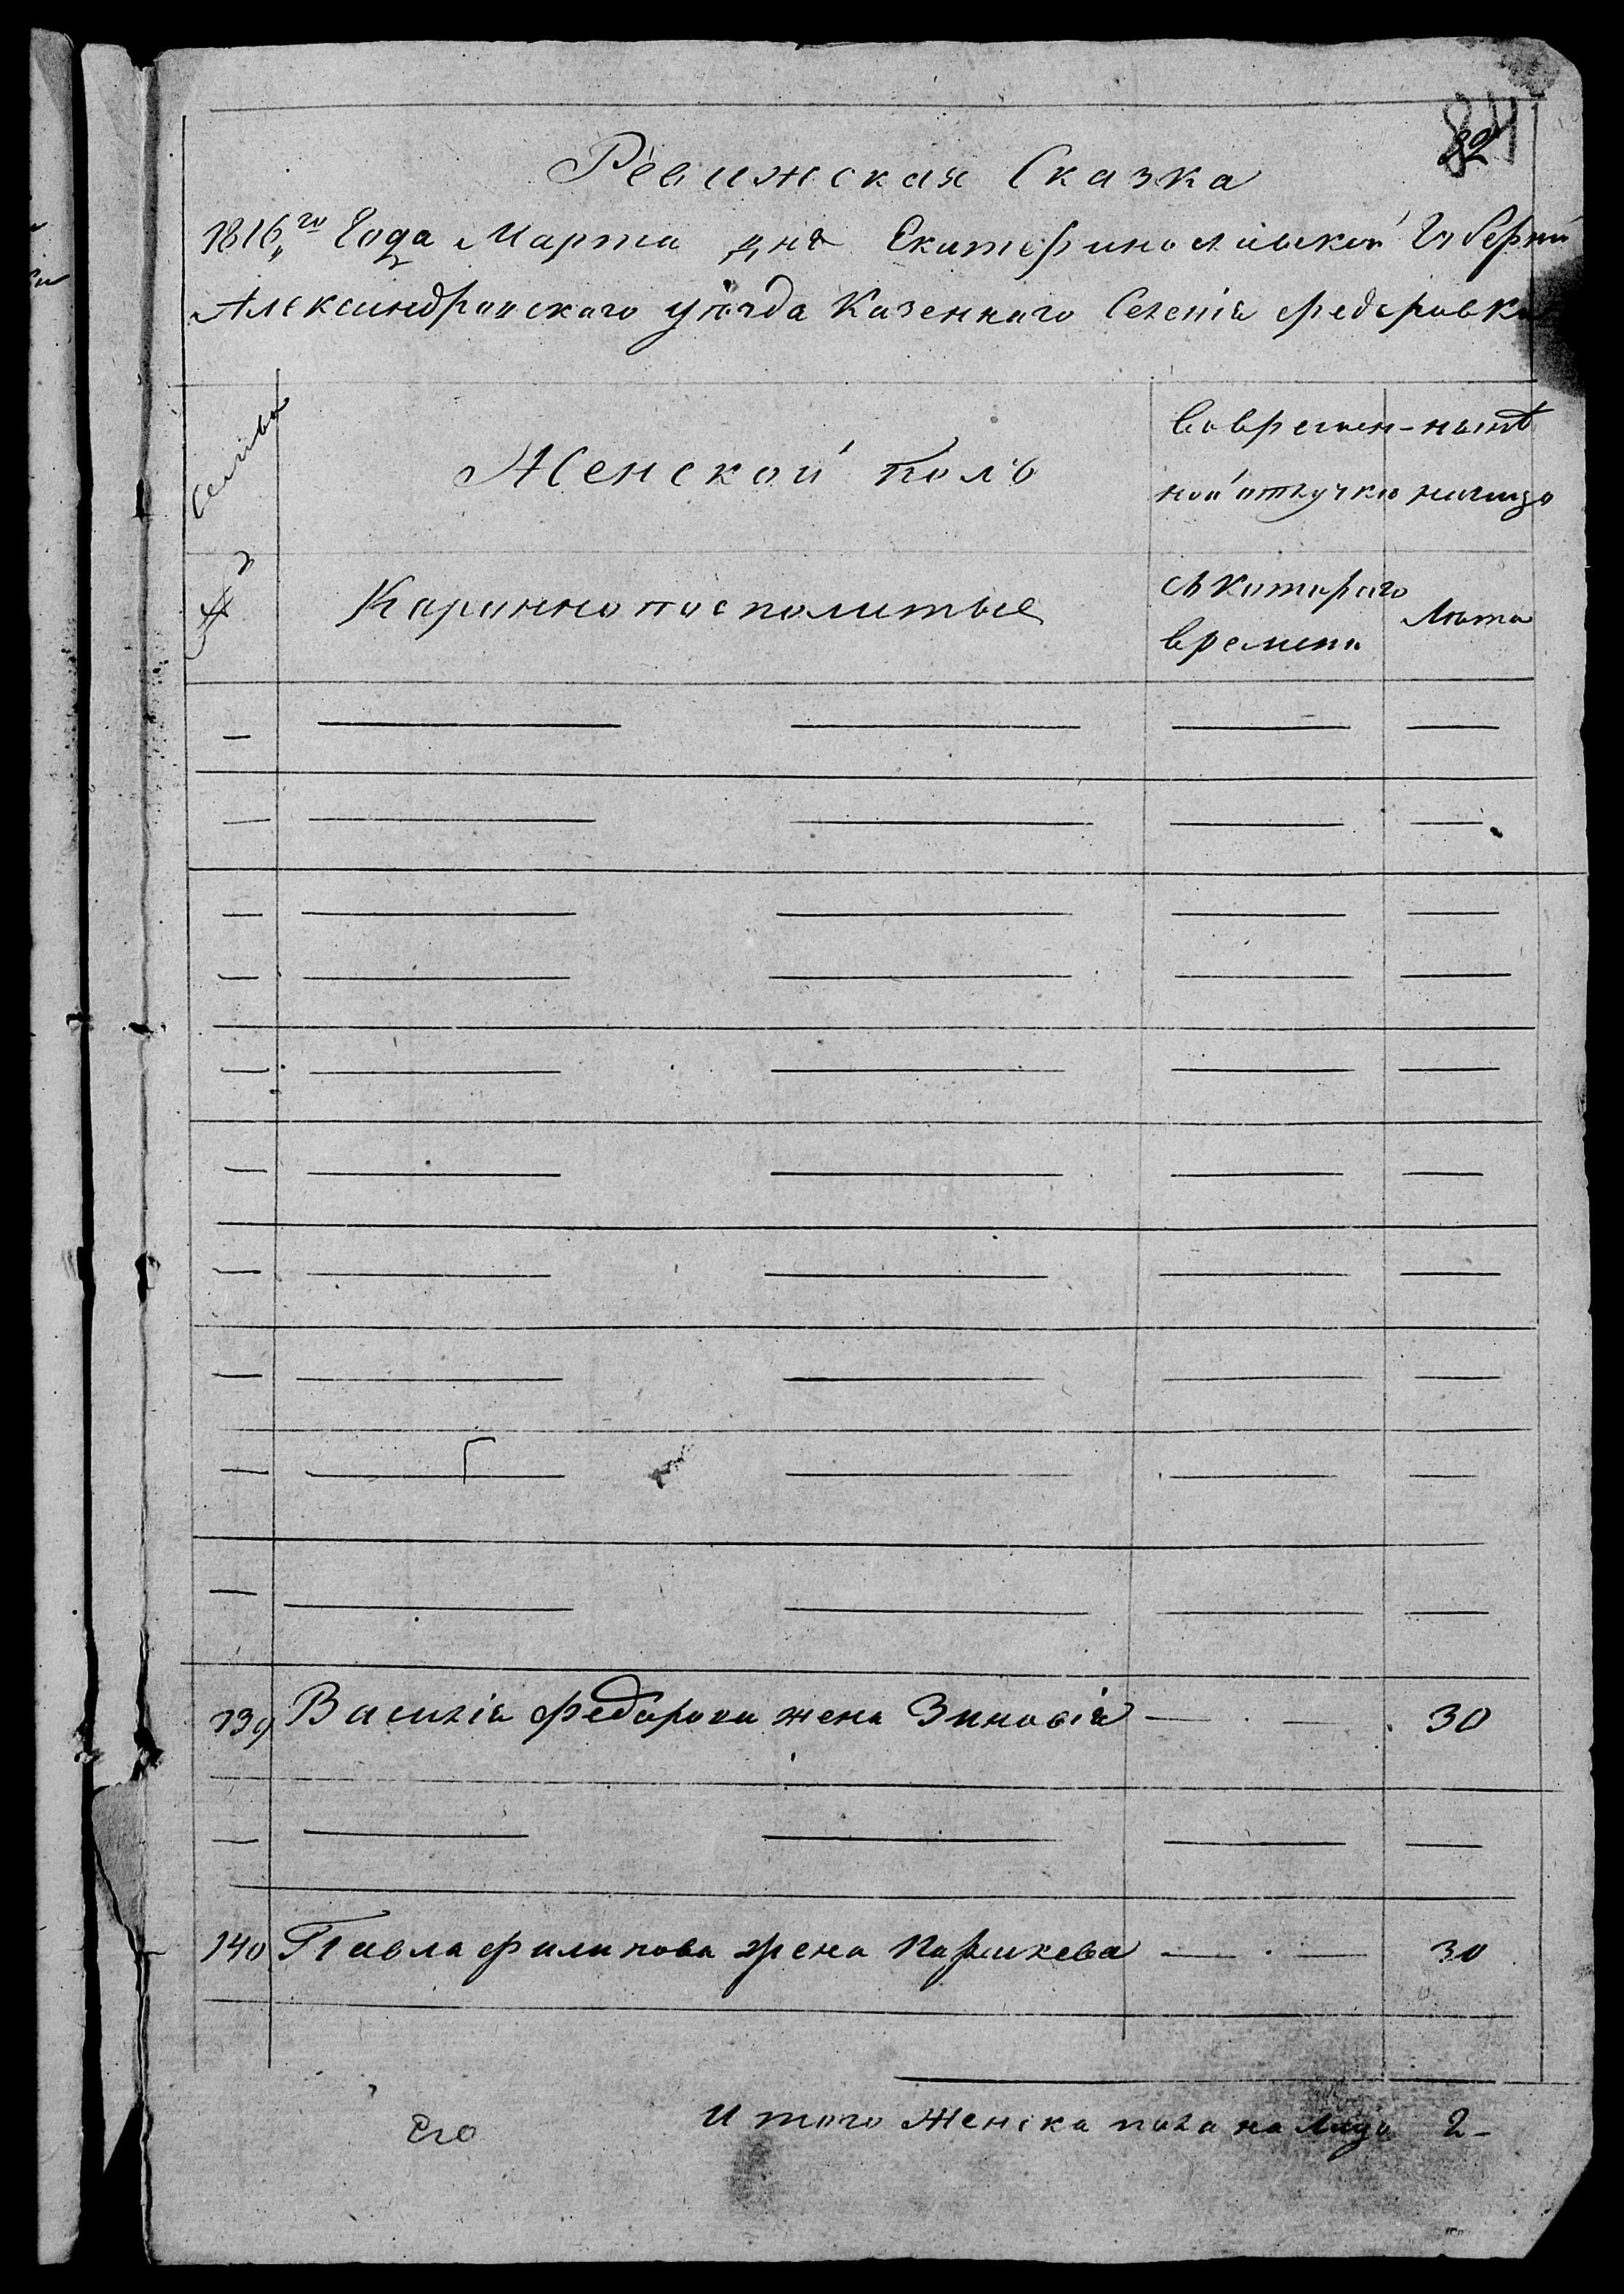 84
82
Ревижская Сказка
1816,, го Года Марта дня Екатеринославской Губернии
Александровского уезда Казенного Селения Федоровки
Семьи
№
Женской полъ
Вовремен-
ной отлучке
ныне
на лицо
Каронно посполитые
съ котораго
времени
Лета
139 Василiя Федорова жена Зиновiя — . — 30
140 Павла Филипова жена Параскева — . — 30
Итого Женска пола на лицо 2 -